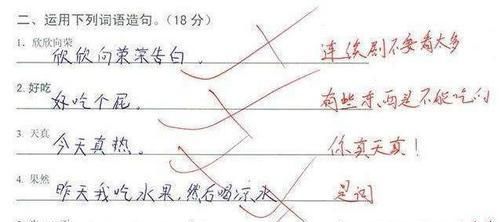 二、运用下列词语造句。(18 分)
1. 欣欣向荣
欣欣向荣荣告白。 连续剧不要看太多
2. 好吃
好吃个屁。 有些东西是不能吃的
3. 天真
今天真热。 你真天真!
4. 果然
昨天我吃水果,然后喝凉水 是词